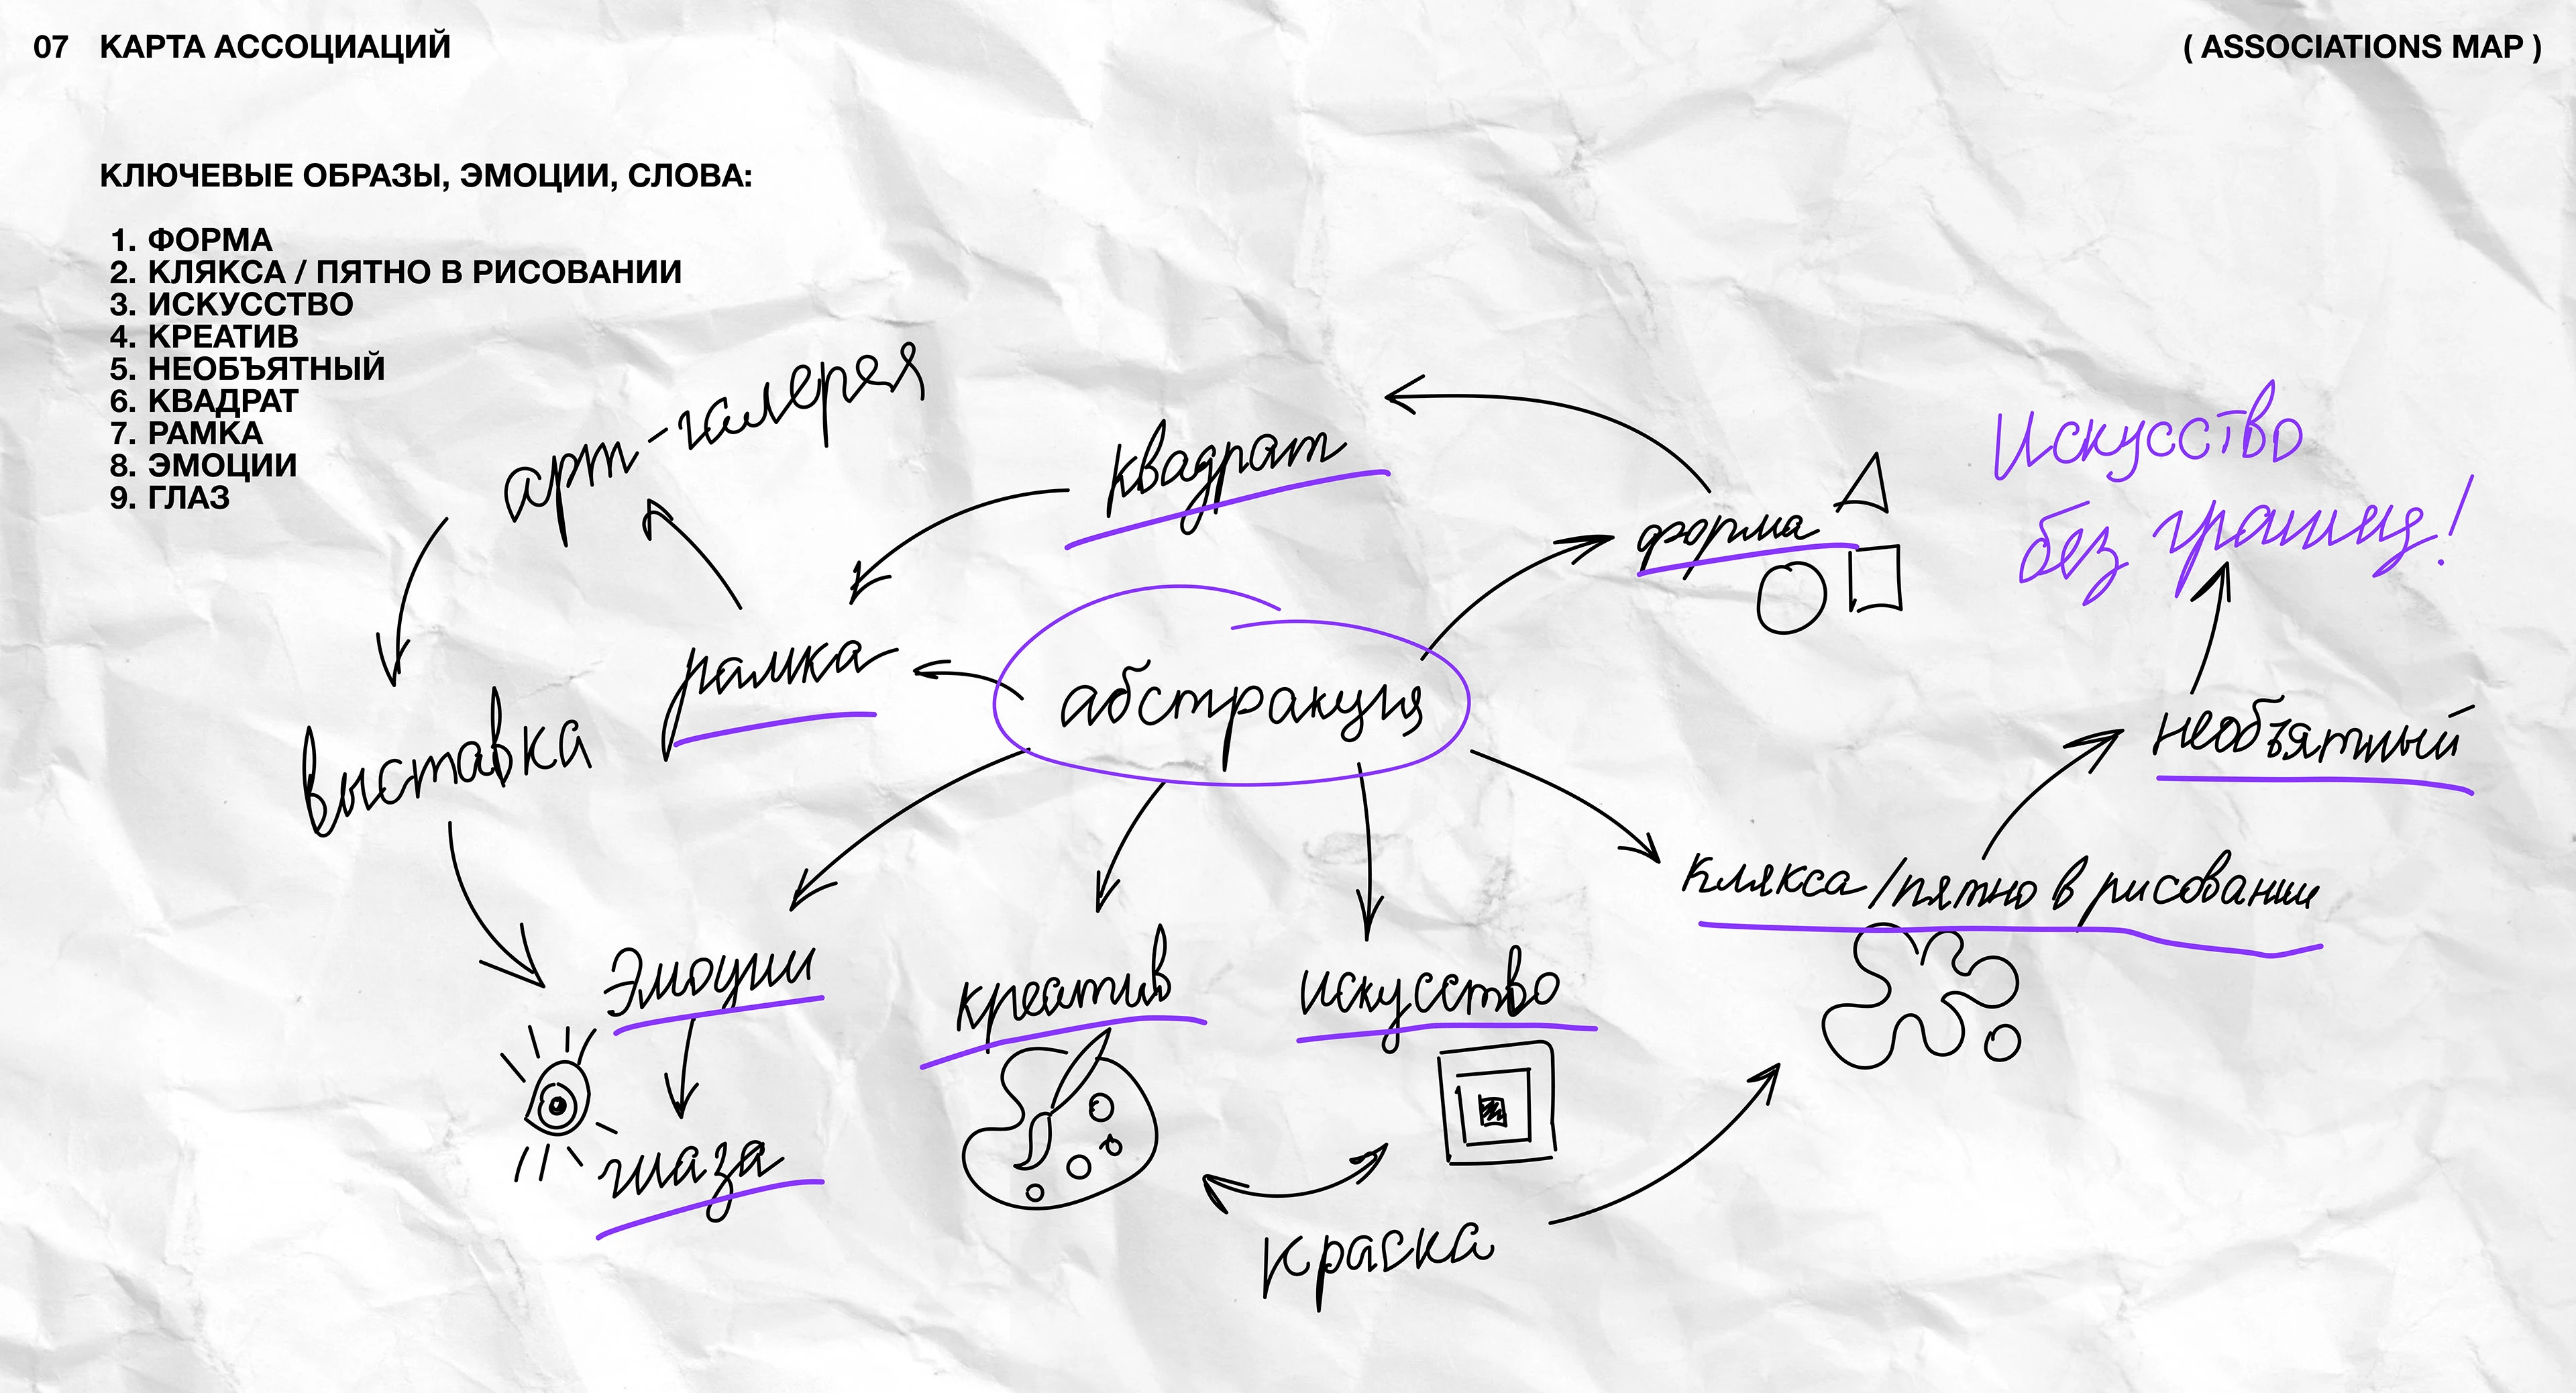 07 КАРТА АССОЦИАЦИЙ
( ASSOCIATIONS MAP )
КЛЮЧЕВЫЕ ОБРАЗЫ, ЭМОЦИИ, СЛОВА:
1. ФОРМА
2. КЛЯКСА / ПЯТНО В РИСОВАНИИ
3. ИСКУССТВО
4. КРЕАТИВ
5. НЕОБЪЯТНЫЙ
6. КВАДРАТ
7. РАМКА
8. ЭМОЦИИ
9. ГЛАЗ
арт-галерея
квадрат
форма
Искусство
без границ!
рамка
абстракция
выставка
необъятный
клякса/пятно в рисовании
Эмоции
креатив
искусство
глаза
краска